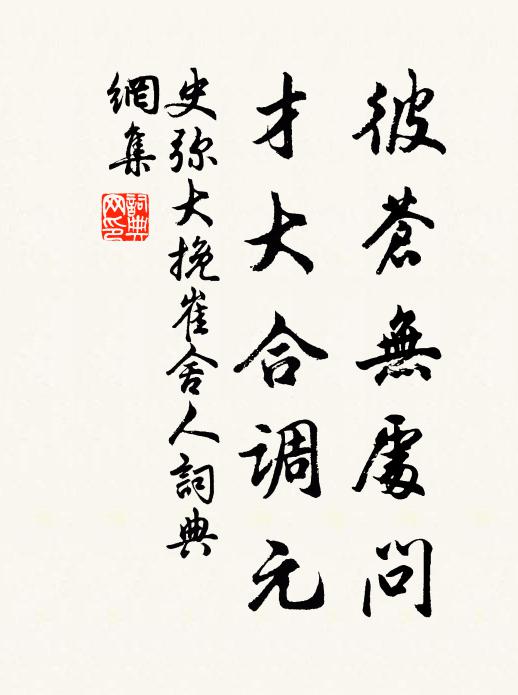 彼蒼無處問
才大合調元
史弥大挽崔舍人詞典
網集
詞典网印